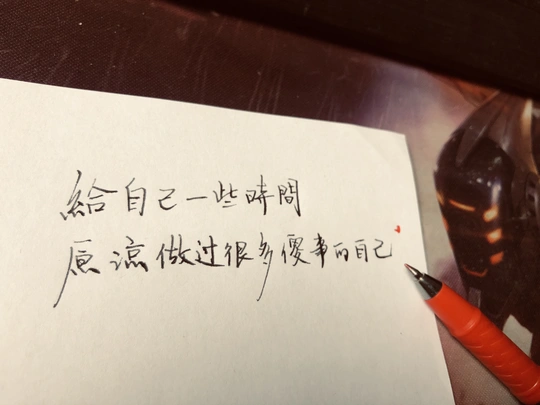 給自己一些時間
原凉做过很多傻事的自己